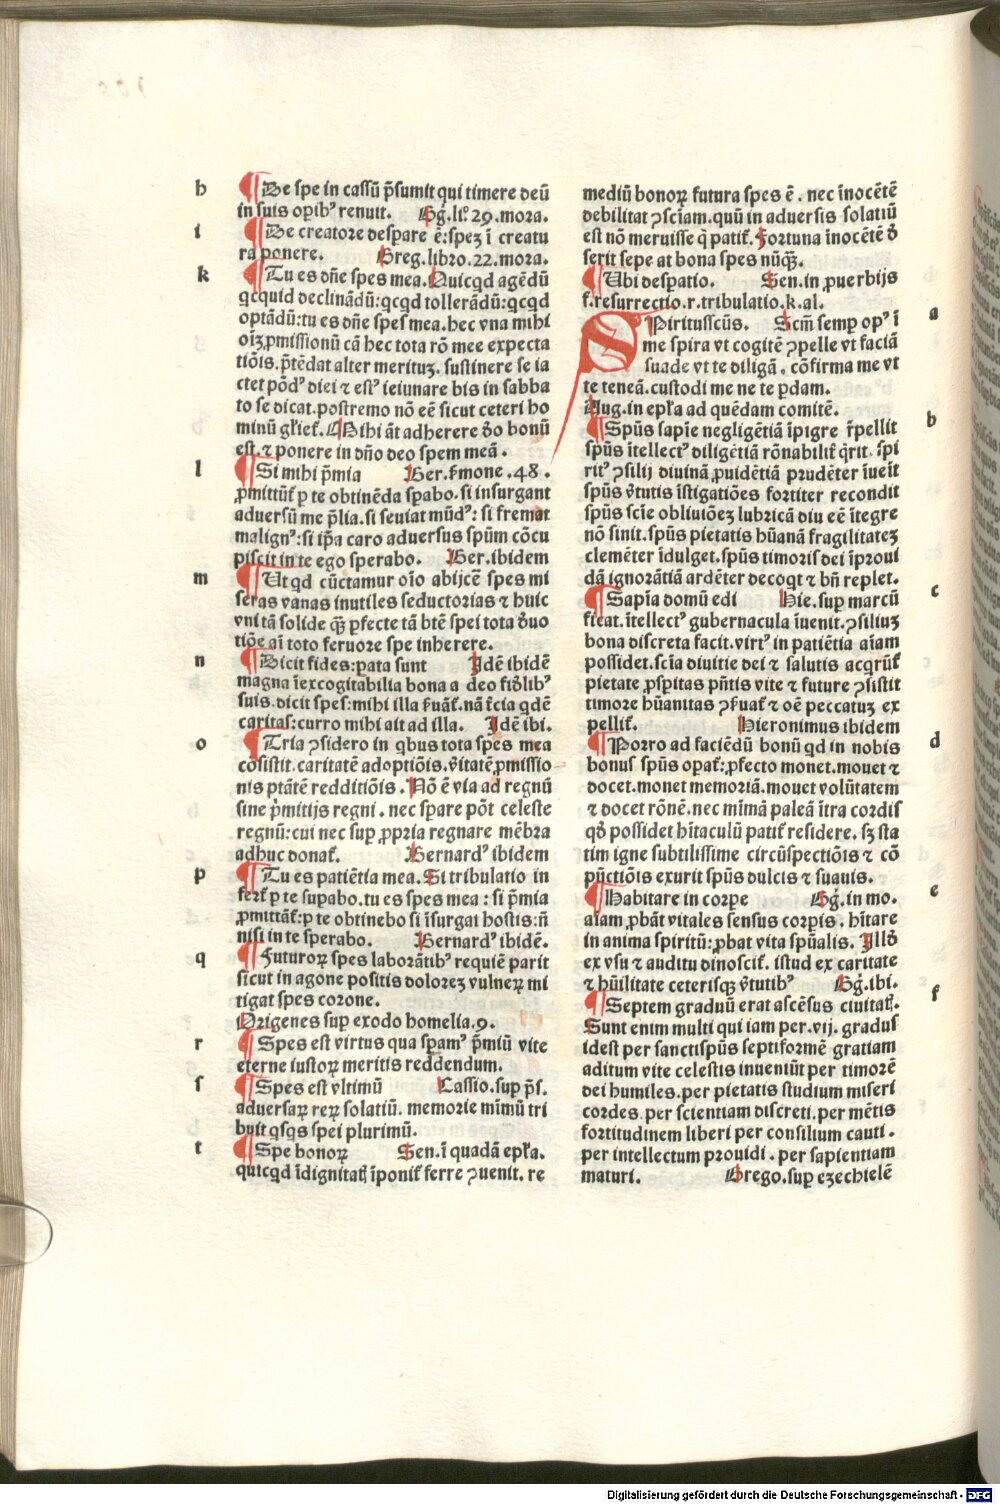 h
¶ De spe in cassū p̄sumit qui timere deū
in suis opibꝰ renuit. Gg. li. 29. mora.
i
¶ De creatore despare ē: spez ī creatu
ra ponere. Greg. libro. 22. mora.
k
¶ Tu es dn̄e spes mea. Quicqd agēdū
qcquid declinādū: qcqd tollerādū: qcqd
optādū: tu es dn̄e spes mea. hec vna mihi
oīꝫ ꝓmissionū cā hec tota rō mee expecta
tiōis. p̄tēdat alter merituꝫ. sustinere se ia
ctet pōdꝰ diei ⁊ estꝰ ieiunare bis in sabba
to se dicat. postremo nō eē sicut ceteri ho
minū gl̄iet̄. Mihi āt adherere deo bonū
est. ⁊ ponere in dn̄o deo spem meā.
l
¶ Si mihi p̄mia Ber. s̄mone. 48.
ꝓmittūt̄ p te obtinēda spabo. si insurgant
aduersū me p̄lia. si seuiat mūdꝰ: si fremat
malignꝰ: si ip̄a caro aduersus spūm cōcu
piscit in te ego sperabo. Ber. ibidem
m
¶ Ut qd cūctamur oīo abijcē spes mi
seras vanas inutiles seductorias ⁊ huic
vni tā solide qꝫ̄ ꝑfecte tā btē spei tota deuo
tiōe aī toto feruore spe inherere.
n
¶ Dicit fides: pata sunt Idē ibidē
magna īexcogitabilia bona a deo fidelibꝰ
suis. dicit spes: mihi illa s̄uāt̄. nā t̄cia qdē
caritas: curro mihi ait ad illa. Idē ibi.
o
¶ Tria ꝯsidero in qbus tota spes mea
cōsistit. caritatē adoptiōis. v̄itatē ꝓmissio
nis ptātē redditiōis. Nō ē via ad regnū
sine p̄mitijs regni. nec spare pōt celeste
regnū: cui nec sup ꝓpria regnare mēbra
adhuc donat̄. Bernardꝰ ibidem
p
¶ Tu es patiētia mea. Si tribulatio in
fert̄ p te supabo. tu es spes mea: si p̄mia
ꝓmittāt̄: p te obtinebo si īsurgat hostis: n̄
nisi in te sperabo. Bernardꝰ ibidē.
q
¶ Futuroꝝ spes laborātibꝰ requiē parit
sicut in agone positis doloreꝫ vulneꝝ mi
tigat spes corone.
Origenes sup exodo homelia. 9.
r
¶ Spes est virtus qua spamꝰ p̄miū vite
eterne iustoꝝ meritis reddendum.
s
¶ Spes est vltimū Cassio. sup p̄s.
aduersaꝝ reꝝ solatiū. memorie mīmū tri
buit qsqs spei plurimū.
t
¶ Spe bonoꝝ Sen. ī quadā epl̄a.
quicqd īdignitatꝭ īponit̄ ferre ꝯuenit. re
mediū bonoꝝ futura spes ē. nec īnocētē
debilitat ꝯscīam. quū in aduersis solatiū
est nō meruisse q̄ patit̄. Fortuna īnocētē de
serit sepe at bona spes nūqꝫ̄.
¶ Ubi despatio. Sen. in ꝓuerbijs
s. resurrectio. r. tribulatio. k. al.
a
Spiritusscūs. Scm̄ semp opꝰ ī
me spira vt cogitē ꝯpelle vt faciā
suade vt te diligā. cōfirma me vt
te teneā. custodi me ne te pdam.
Aug. in epl̄a ad quēdam comitē.
b
¶ Spūs sapīe negligētiā īpigre r̄pellit
spūs ītellectꝰ diligētiā rōnabilit̄ q̄rit. spi
ritꝰ ꝯsilij diuinā ꝓuidētiā prudēter īueīt
spūs v̄tutis īstigatiōes fortiter recondit
spūs scīe obliuiōeꝫ lubricā diu eē ītegre
nō sinit. spūs pietatis hūanā fragilitateꝫ
clemēter īdulget. spūs timoris dei īproui
dā ignorātiā ardēter decoqt ⁊ bn̄ replet.
c
¶ Sapīa domū edi Hie. sup marcū
ficat. ītellectꝰ gubernacula īuenit. ꝯsiliuꝫ
bona discreta facit. virtꝰ in patiētia aīam
possidet. scīa diuitie dei ⁊ salutis acqrūt̄
pietate ꝓspitas pn̄tis vite ⁊ future ꝯsistit
timore hūanitas ꝯs̄uat̄ ⁊ oē peccatuꝫ ex
pellit̄. Hieronimus ibidem
d
¶ Porro ad faciēdū bonū qd in nobis
bonus spūs opat̄: ꝓfecto monet. mouet ⁊
docet. monet memoriā. mouet volūtatem
⁊ docet rōnē. nec mīmā paleā ītra cordis
qd possidet hītaculū patit̄ residere. sꝫ sta
tim igne subtilissime circūspectiōis ⁊ cō
pūctiōis exurit spūs dulcis ⁊ suauis.
e
¶ Habitare in corpe Gg. in mo.
aīam ꝓbāt vitales sensus corpis. hītare
in anima spiritū: ꝓbat vita spūalis. Illd
ex vsu ⁊ auditu dinoscit̄. istud ex caritate
⁊ hūilitate ceterisqꝫ v̄tutibꝰ Gg. ibi.
f
¶ Septem graduū erat ascēsus ciuitatꝭ.
Sunt enim multi qui iam per. vij. gradus
idest per sanctispūs septiformē gratiam
aditum vite celestis inueniūt per timorē
dei humiles. per pietatis studium miseri
cordes. per scientiam discreti. per mētis
fortitudinem liberi per consilium cauti.
per intellectum prouidi. per sapientiam
maturi. Grego. sup ezechielē
Digitalisierung gefördert durch die Deutsche Forschungsgemeinschaft - DFG